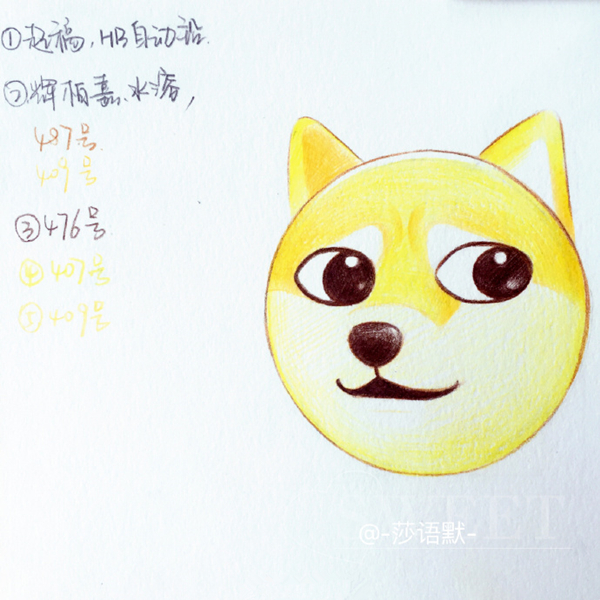 ①起福,HB自动铅.
②辉柏嘉,水溶,
487号
409号
③476号
④407号
⑤409号
@-莎语默-